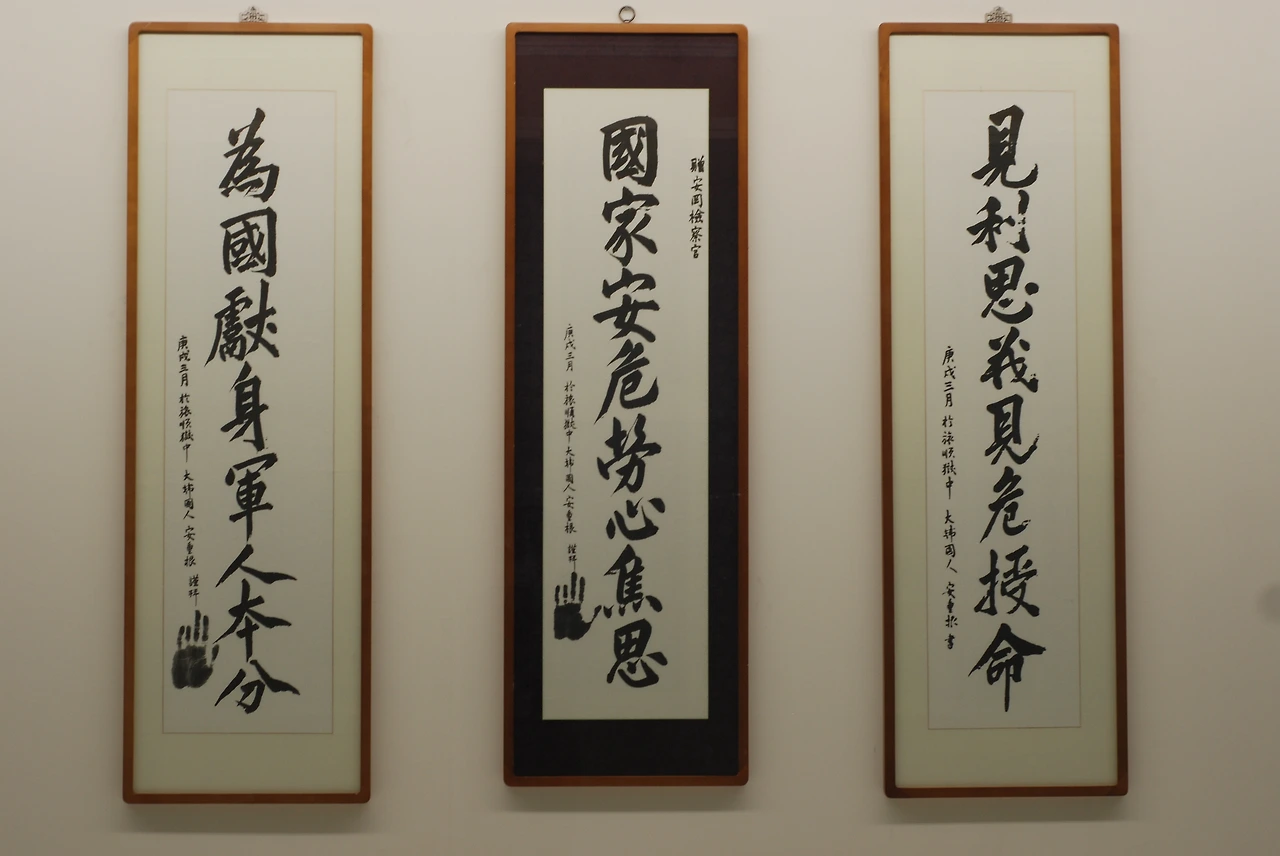 為國獻身軍人本分
庚戌三月 於旅順獄中 大韓國人 安重根 謹拜
贈安岡檢察官
國家安危勞心焦思
庚戌三月 於旅順獄中 大韓國人 安重根 謹拜
見利思義見危授命
庚戌三月 於旅順獄中 大韓國人 安重根 書